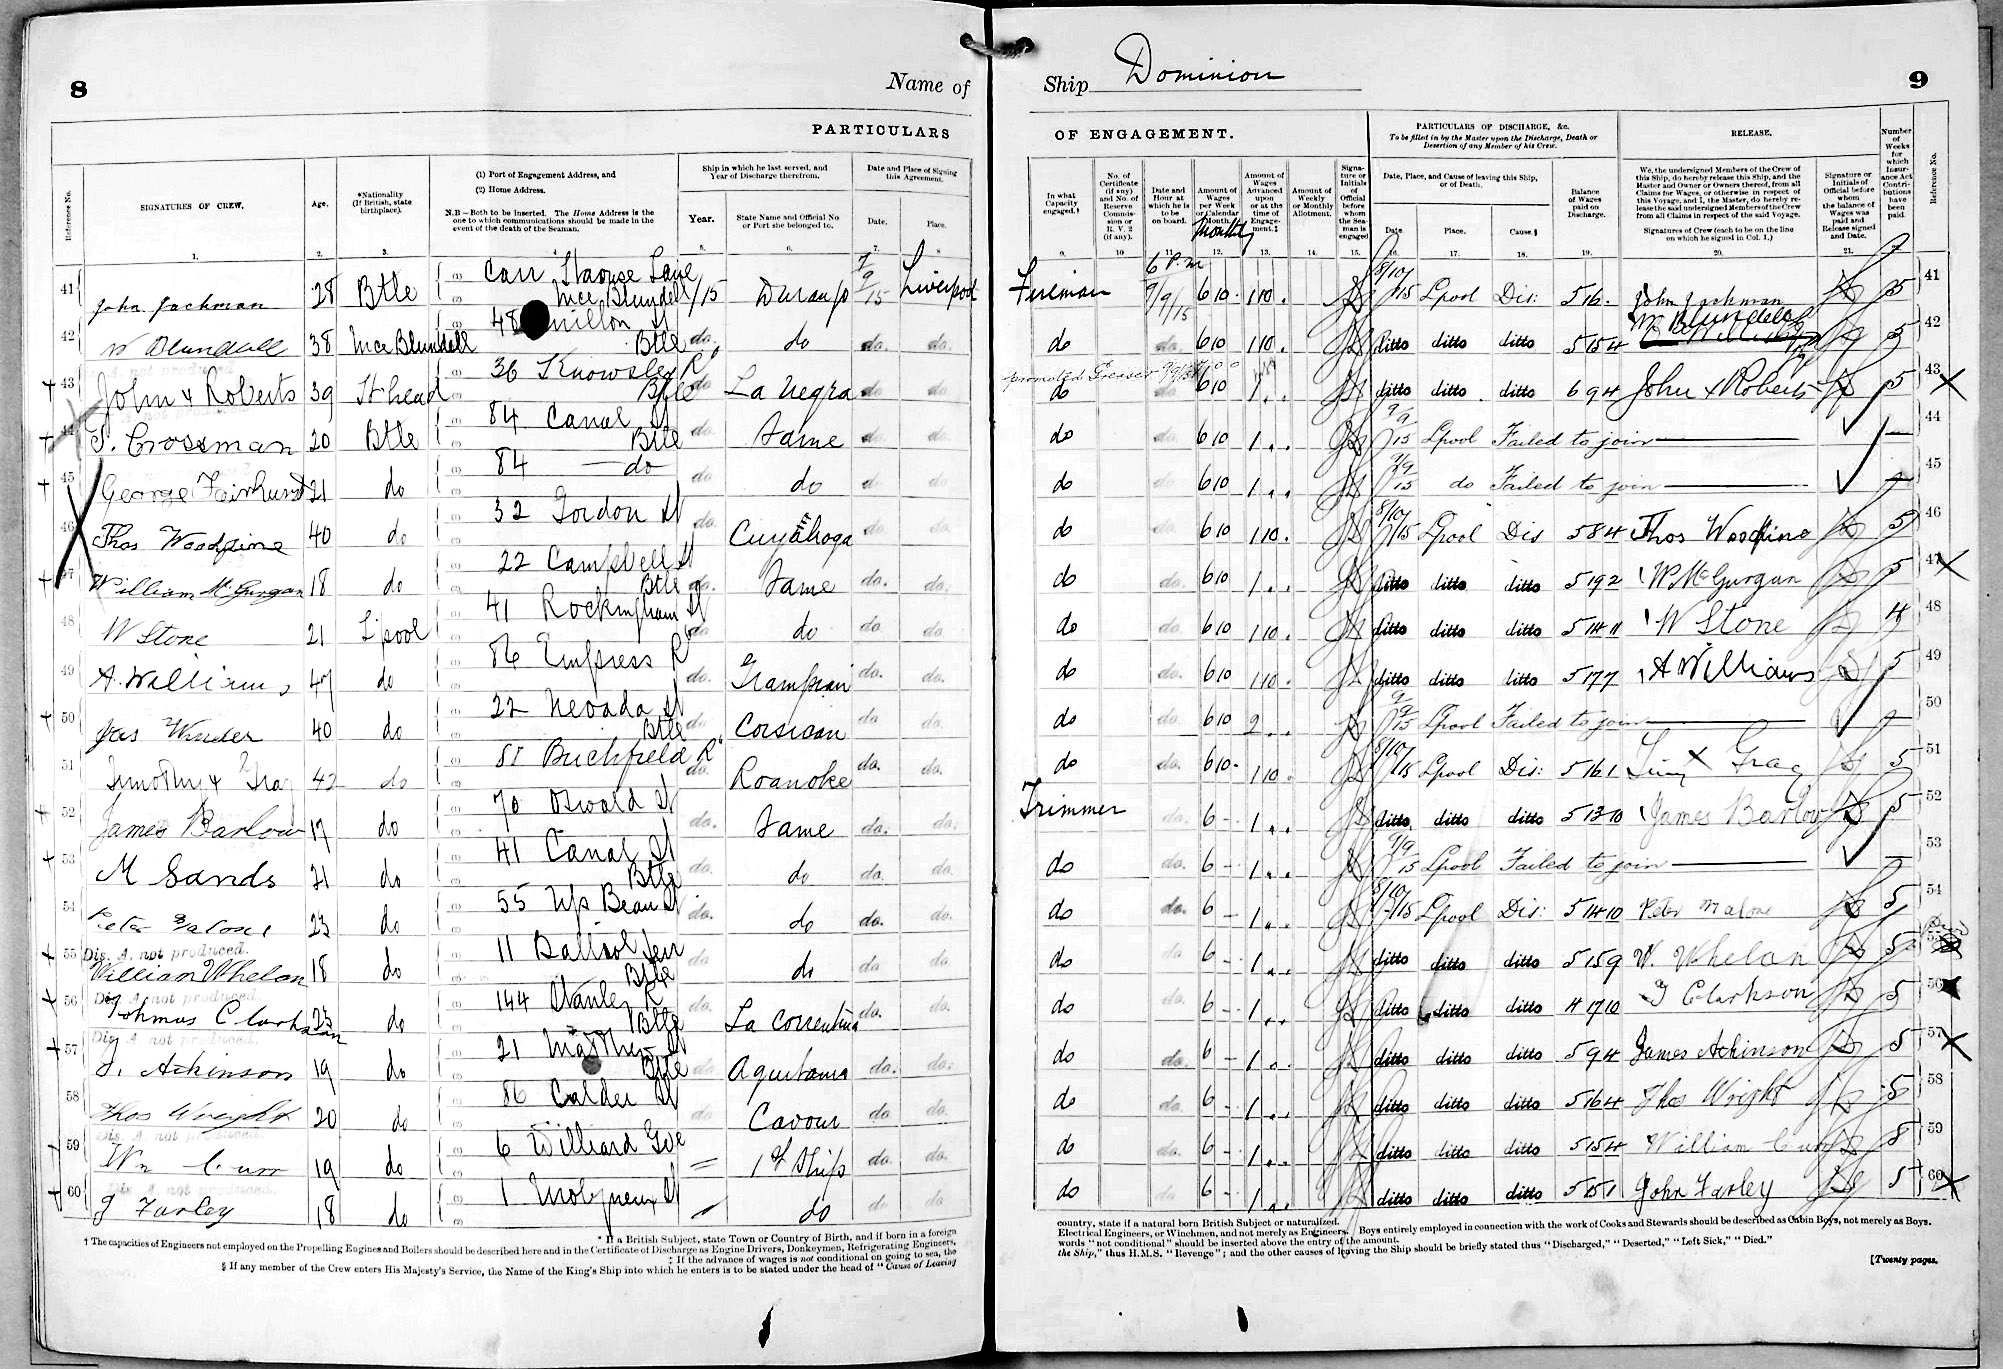 8
Name of
PARTICULARS
Reference No.
SIGNATURES OF CREW.
Age.
*Nationality
(If British, state
birthplace).
(1) Port of Engagement Address, and
(2) Home Address.
N.B — Both to be inserted. The Home Address is the
one to which communications should be made in the
event of the death of the Seaman.
Ship in which he last served, and
Year of Discharge therefrom.
Year.
State Name and Official No
or Port she belonged to.
Date and Place of Signing
this Agreement.
Date.
Place.
1. 2. 3. 4. 5. 6. 7. 8
41 John Jackman 28 Btle Carr House Lane Ince Blundell /15 Durango 7/9/15 Liverpool
42 W Blundell 38 Ince Blundell 48 St Btle do. do do. do.
43 John x Roberts 39 St head 36 Knowsley Rd Btle do La Negra do do
44 T. Crossman 20 Btle 84 Canal St Btle do. Same do do.
45 George Fairhurst 21 do 84 — do — do do do do.
46 Thos Woodfine 40 do 32 Gordon St do. Cuyahoga do do.
47 William McGurgan 18 do 22 Campbell St Btle do. Same do. do.
48 W Stone 21 L'pool 41 Rockingham St do do do. do.
49 A. Williams 47 do 86 Empress Rd do. Grampian do. do.
50 Jas Winder 40 do 22 Nevada St Btle do Corsican do do.
51 Timothy x Gray 42 do Buchfield Rd do. Roanoke do. do.
52 James Barlow 17 do 70 Oswald St do. Same do. do.
53 M Sands 21 do 41 Canal St Btle do. do do. do.
54 Peter Malone 23 do 55 Up Beau St do. do do. do.
55 Dis. A. not produced.
William Whelan 18 do 11 Balliol Btle do. do do do.
56 Dis. A. not produced.
Thomas Clarkson 23 do 144 Stanley Rd Btle do. La Correntina do. do.
57 Dis. A. not produced.
J. Ackinson 19 do 21 Matthew St Btle do. Aquitania do. do.
58 Thos Wright 20 do 86 Calder St do Cavour do. do.
59 Dis. A. not produced.
Wm Curr 19 do 6 Williard Gve — 1st Ship do. do.
60 Dis. A. not produced.
J Farley 18 do 1 Molyneux St do do do
* If a British Subject, state Town or Country of Birth, and if born in a foreign
† The capacities of Engineers not employed on the Propelling Engines and Boilers should be described here and in the Certificate of Discharge as Engine Drivers, Donkeymen, Refrigerating Engineers,
‡ If the advance of wages is not conditional on going to sea, the
§ If any member of the Crew enters His Majesty's Service, the Name of the King's Ship into which he enters is to be stated under the head of "Cause of Leaving
Ship Dominion
9
OF ENGAGEMENT.
PARTICULARS OF DISCHARGE, &c.
To be filled in by the Master upon the Discharge, Death or
Desertion of any Member of his Crew.
RELEASE.
Number
of
Weeks
for
which
Insur-
ance Act
Contri-
butions
have
been
paid.
Reference No.
In what
Capacity
engaged.†
No. of
Certificate
(if any)
and No. of
Reserve
Commis-
sion or
R. V. 2
(if any).
Date and
Hour at
which he is
to be
on board.
Amount of
Wages
per Week
or Calendar
Month.
Monthly
Amount of
Wages
Advanced
upon
or at the
time of
Engage-
ment.‡
Amount of
Weekly
or Monthly
Allotment.
Signa-
ture or
Initials
of
Official
before
whom
the Sea-
man is
engaged
Date, Place, and Cause of leaving this Ship,
or of Death.
Date.
Place.
Cause.§
Balance
of Wages
paid on
Discharge.
We, the undersigned Members of the Crew of
this Ship, do hereby release this Ship, and the
Master and Owner or Owners thereof, from all
Claims for Wages, or otherwise in respect of
this Voyage, and I, the Master, do hereby re-
lease the said undersigned Members of the Crew
from all Claims in respect of the said Voyage.
Signatures of Crew (each to be on the line
on which he signed in Col. 1.)
Signature or
Initials of
Official before
whom
the balance of
Wages was
paid and
Release signed
and Date.
9. 10 11. 12. 13. 14. 15. 16. 17. 18. 19. 20. 21.
Fireman 6 P.m 9/9/15 6 10 1 10 8/10/15 Lpool Dis: 5 16. John Jackman 5 41
do do. 6 10 1 10 ditto ditto ditto 5 15 4 W Blundell 5 42
promoted Greaser 9/9/15
do 6 10 1 ditto ditto ditto 6 9 4 John x Roberts 5 43
do do. 6 10 1 9/9/15 Lpool Failed to join — 44
do do. 6 10 1 9/9/15 do Failed to join — 45
do do. 6 10 1 10 8/10/15 Lpool Dis 5 8 4 Thos Woodfine 5 46
do do. 6 10 1 ditto ditto ditto 5 19 2 W McGurgan 5 47
do do. 6 10 1 10 ditto ditto ditto 5 14 11 W Stone 4 48
do do. 6 10 1 10 ditto ditto ditto 5 17 7 A Williams 5 49
do do. 6 10 2 9/9/15 Lpool Failed to join — 50
do do. 6 10 1 10 8/10/15 Lpool Dis: 5 16 1 Timy x Gray 5 51
Trimmer do. 6 – 1 ditto ditto ditto 5 13 10 James Barlow 5 52
do do. 6 – 1 9/9/15 Lpool Failed to join — 53
do do. 6 – 1 8/10/15 Lpool Dis: 5 14 10 Peter Malone 5 54
do do. 6 – 1 ditto ditto ditto 5 15 9 W. Whelan 5
do do. 6 – 1 ditto ditto ditto 4 17 10 T Clarkson 5 56
do do. 6 – 1 ditto ditto ditto 5 9 4 James Ackinson 5 57
do do. 6 – 1 ditto ditto ditto 5 16 4 Thos Wright 5 58
do do. 6 – 1 ditto ditto ditto 5 15 4 William Curr 5 59
do do. 6 – 1 ditto ditto ditto 5 15 1 John Farley 5 60
country, state if a natural born British Subject or naturalized.
Electrical Engineers, or Winchmen, and not merely as Engineers. ∥ Boys entirely employed in connection with the work of Cooks and Stewards should be described as Cabin Boys, not merely as Boys.
words "not conditional" should be inserted above the entry of the amount.
the Ship," thus H.M.S. "Revenge"; and the other causes of leaving the Ship should be briefly stated thus "Discharged," "Deserted," "Left Sick," "Died."
[Twenty pages.